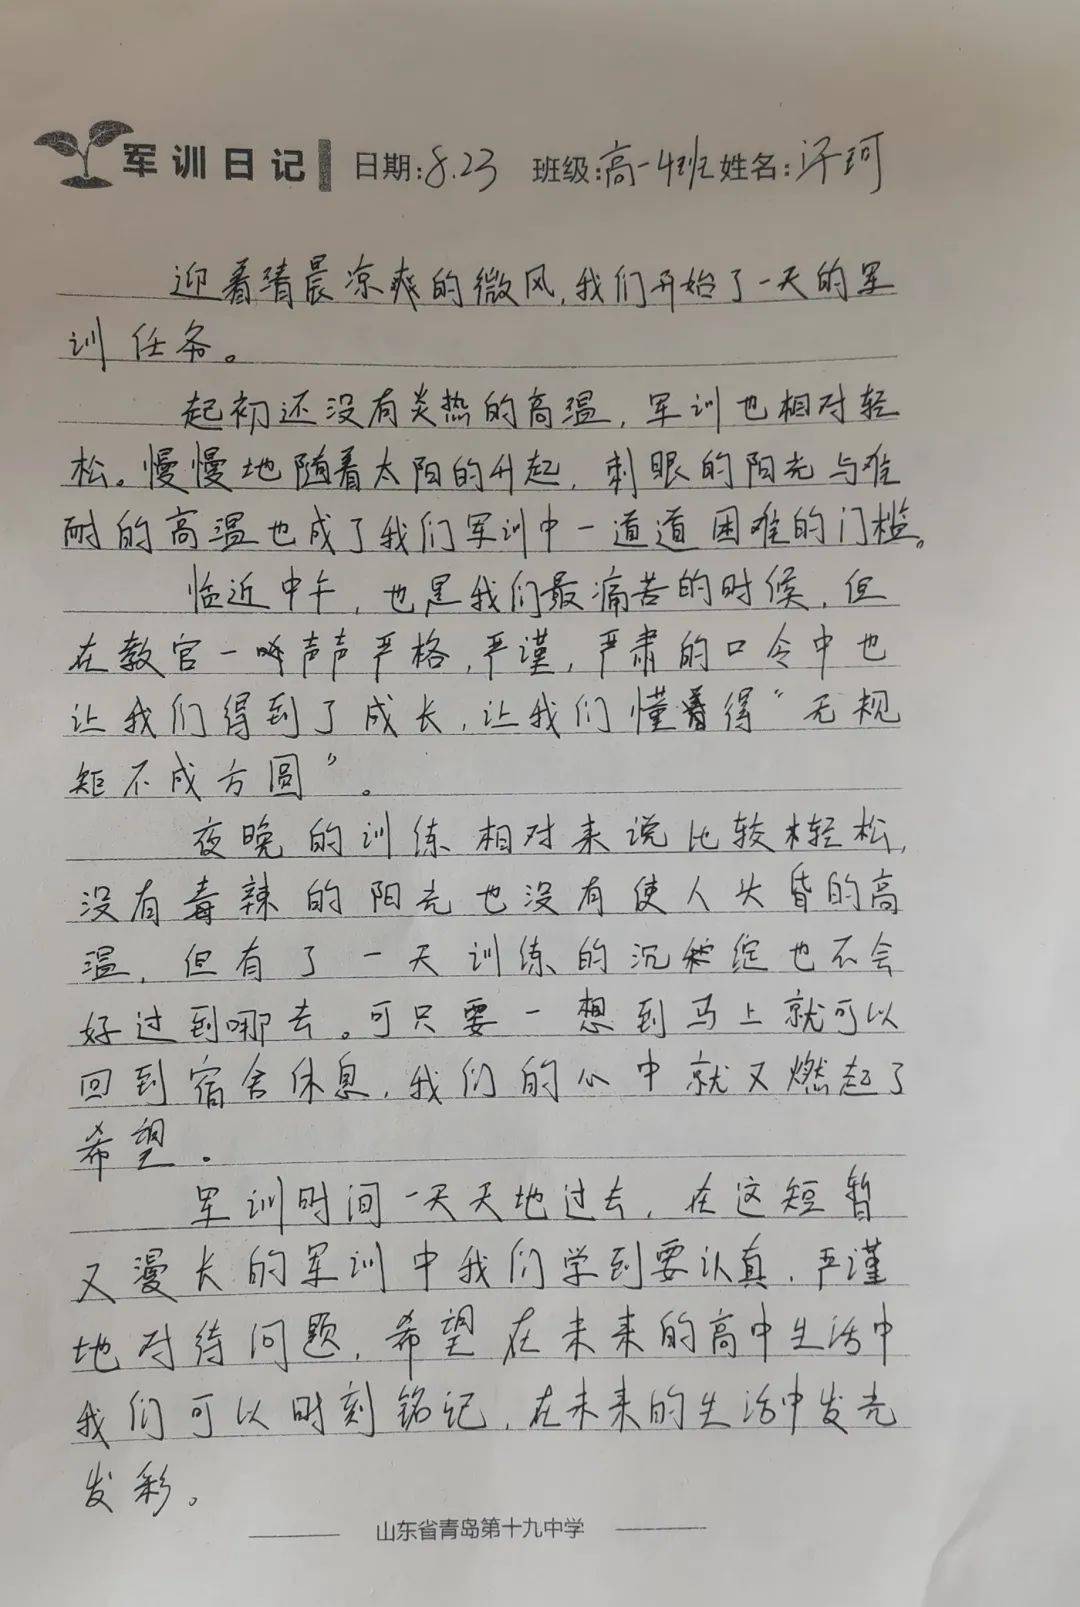 军训日记 日期:8.23 班级:高一4班 姓名:许珂
迎着清晨凉爽的微风,我们开始了一天的军
训任务。
起初还没有炎热的高温,军训也相对轻
松。慢慢地随着太阳的升起,刺眼的阳光与难
耐的高温也成了我们军训中一道道困难的门槛。
临近中午,也是我们最痛苦的时候,但
在教官一声声严格,严谨,严肃的口令中也
让我们得到了成长,让我们懂得“无规
矩不成方圆”。
夜晚的训练相对来说比较轻松,
没有毒辣的阳光也没有使人头昏的高
温,但有了一天训练的沉淀也不会
好过到哪去。可只要一想到马上就可以
回到宿舍休息,我们的心中就又燃起了
希望.
军训时间一天天地过去,在这短暂
又漫长的军训中我们学到要认真,严谨
地对待问题,希望在未来的高中生活中
我们可以时刻铭记,在未来的生活中发光
发彩。
山东省青岛第十九中学